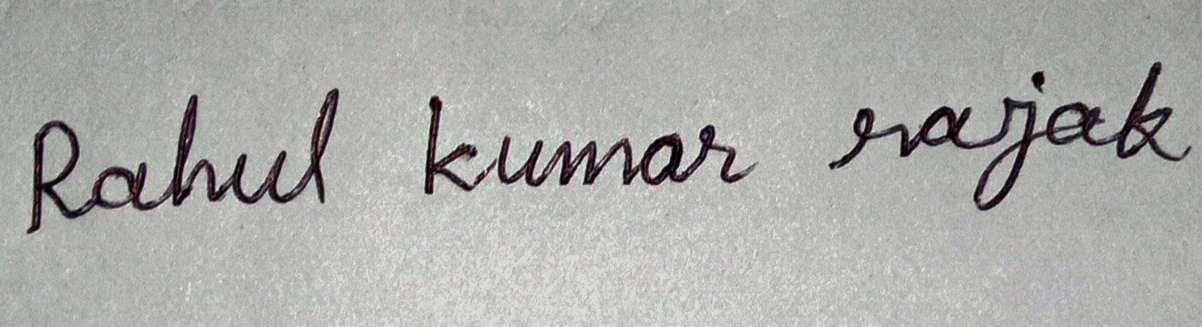 Rahul kumar rajak